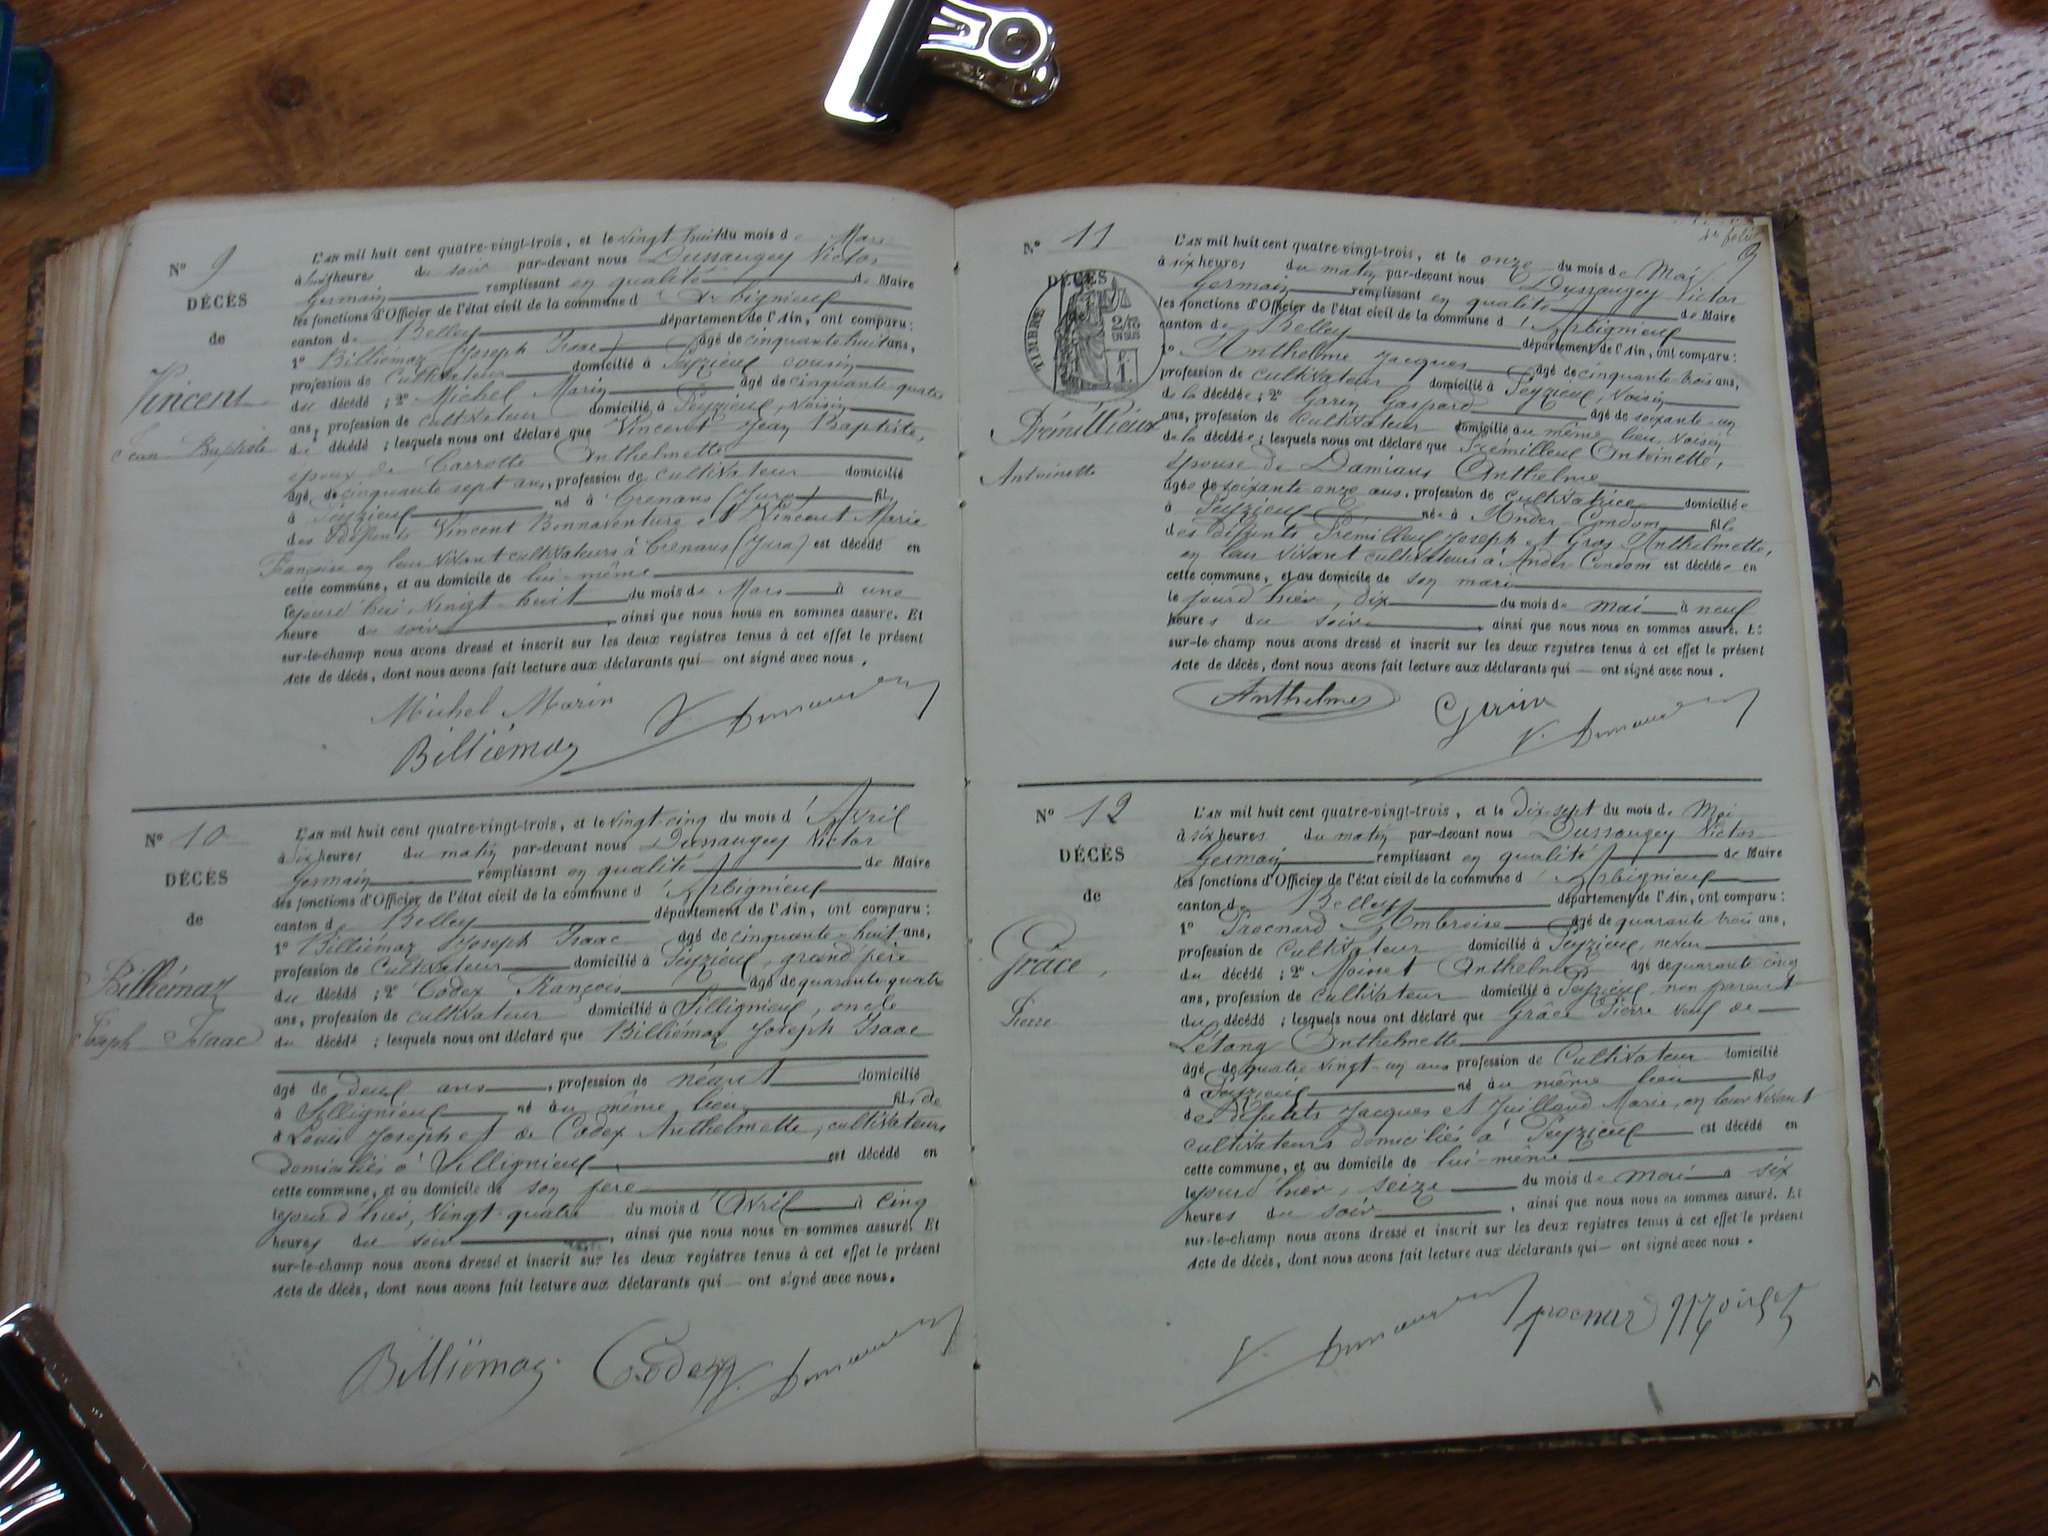 N° 9
DÉCÈS
de
Vincent
Jean Baptiste
L'AN mil huit cent quatre-vingt-trois, et le vingt huit du mois de Mars
à heures du soir par-devant nous Dussaugey Victor
Germain remplissant en qualité de Maire
les fonctions d'Officier de l'état civil de la commune d'Arbignieu
canton de Belley département de l'Ain, ont comparu:
1° Billiémaz Joseph Isaac âgé de cinquante huit ans,
profession de Cultivateur domicilié à Peyzieu cousin
du décédé; 2° Michel Marin âgé de cinquante quatre
ans, profession de cultivateur domicilié à Peyzieu, voisin
du décédé; lesquels nous ont déclaré que Vincent Jean Baptiste,
époux de Carrotte Anthelmette
âgé de cinquante sept ans, profession de cultivateur domicilié
à Peyzieu né à Crenans (Jura) fils
des défunts Vincent Bonnaventure et Vincent Marie
Françoise en leur vivant cultivateurs à Crenans (Jura) est décédé en
cette commune, et au domicile de lui-même
le jourd'hui, vingt-huit du mois de Mars à une
heure du soir, ainsi que nous nous en sommes assuré. Et
sur-le-champ nous avons dressé et inscrit sur les deux registres tenus à cet effet le présent
Acte de décès, dont nous avons fait lecture aux déclarants qui — ont signé avec nous.
Michel Marin
Billiémaz
N° 10
DÉCÈS
de
Billiémaz
Joseph Isaac
L'AN mil huit cent quatre-vingt-trois, et le vingt-cinq du mois d'Avril
à six heures du matin par-devant nous Dussaugey Victor
Germain remplissant en qualité de Maire
les fonctions d'Officier de l'état civil de la commune d'Arbignieu
canton de Belley département de l'Ain, ont comparu:
1° Billiémaz Joseph Isaac âgé de cinquante-huit ans,
profession de Cultivateur domicilié à Peyzieu, grand père
du décédé; 2° Codex François âgé de quarante quatre
ans, profession de cultivateur domicilié à Sillignieu, oncle
du décédé; lesquels nous ont déclaré que Billiémaz Joseph Isaac
âgé de deux ans, profession de néant domicilié
à Sillignieu né au même lieu fils de
Louis Joseph et de Codex Anthelmette, cultivateurs
domiciliés à Sillignieu est décédé en
cette commune, et au domicile de son père
le jour d'hier, vingt-quatre du mois d'Avril à cinq
heures du soir, ainsi que nous nous en sommes assuré. Et
sur-le-champ nous avons dressé et inscrit sur les deux registres tenus à cet effet le présent
Acte de décès, dont nous avons fait lecture aux déclarants qui — ont signé avec nous.
Billiémaz Codex
9
N° 11
DÉCÈS
TIMBRE
Prémillieux
Antoinette
L'AN mil huit cent quatre-vingt-trois, et le onze du mois de Mai
à six heures du matin par-devant nous Dussaugey Victor
Germain remplissant en qualité de Maire
les fonctions d'Officier de l'état civil de la commune d'Arbignieu
canton de Belley département de l'Ain, ont comparu:
1° Anthelme Jacques âgé de cinquante-trois ans,
profession de cultivateur domicilié à Peyzieu, voisin
de la décédée; 2° Garin Gaspard âgé de soixante-un
ans, profession de Cultivateur domicilié au même lieu, voisin
de la décédée; lesquels nous ont déclaré que Prémilleux Antoinette,
épouse de Damians Anthelme
âgée de soixante-onze ans, profession de cultivatrice domiciliée
à Peyzieu née à Ander-Condom fille
des défunts Prémilleux Joseph et Gros Anthelmette,
en leur vivant cultivateurs à Ander-Condom est décédée en
cette commune, et au domicile de son mari
le jourd'hier, dix du mois de mai à neuf
heures du soir, ainsi que nous nous en sommes assuré. Et
sur-le-champ nous avons dressé et inscrit sur les deux registres tenus à cet effet le présent
Acte de décès, dont nous avons fait lecture aux déclarants qui — ont signé avec nous.
Anthelme Garin
N° 12
DÉCÈS
de
Grâce,
Pierre
L'AN mil huit cent quatre-vingt-trois, et le Dix-sept du mois de Mai
à six heures du matin par-devant nous Dussaugey Victor
Germain remplissant en qualité de Maire
les fonctions d'Officier de l'état civil de la commune d'Arbignieu
canton de Belley département de l'Ain, ont comparu:
1° Procnard Ambroise âgé de quarante trois ans,
profession de Cultivateur domicilié à Peyzieu, neveu
du décédé; 2° Moiret Anthelme âgé de quarante cinq
ans, profession de cultivateur domicilié à Peyzieu, non parent
du décédé; lesquels nous ont déclaré que Grâce Pierre veuf de
Létang Anthelmette
âgé de quatre vingt-un ans profession de Cultivateur domicilié
à Peyzieu né au même lieu fils
de défunts Jacques et Juilland Marie, en leur vivant
cultivateurs domiciliés à Peyzieu est décédé en
cette commune, et au domicile de lui-même
le jourd'hier, seize du mois de mai à six
heures du soir, ainsi que nous nous en sommes assuré. Et
sur-le-champ nous avons dressé et inscrit sur les deux registres tenus à cet effet le présent
Acte de décès, dont nous avons fait lecture aux déclarants qui — ont signé avec nous.